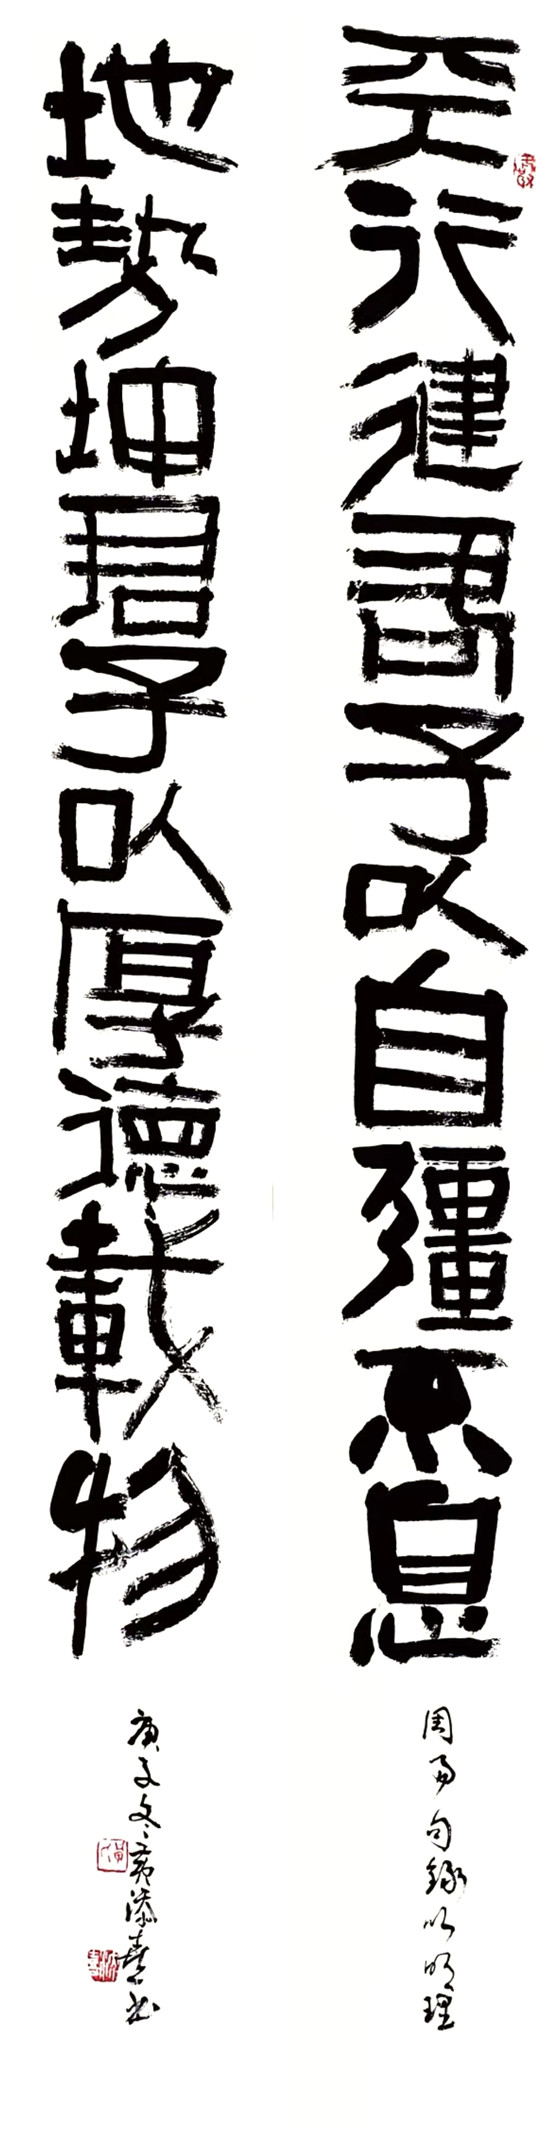 天行健君子以自彊不息
周易句録以明理
地勢坤君子以厚德載物
庚子冬黄添喜书